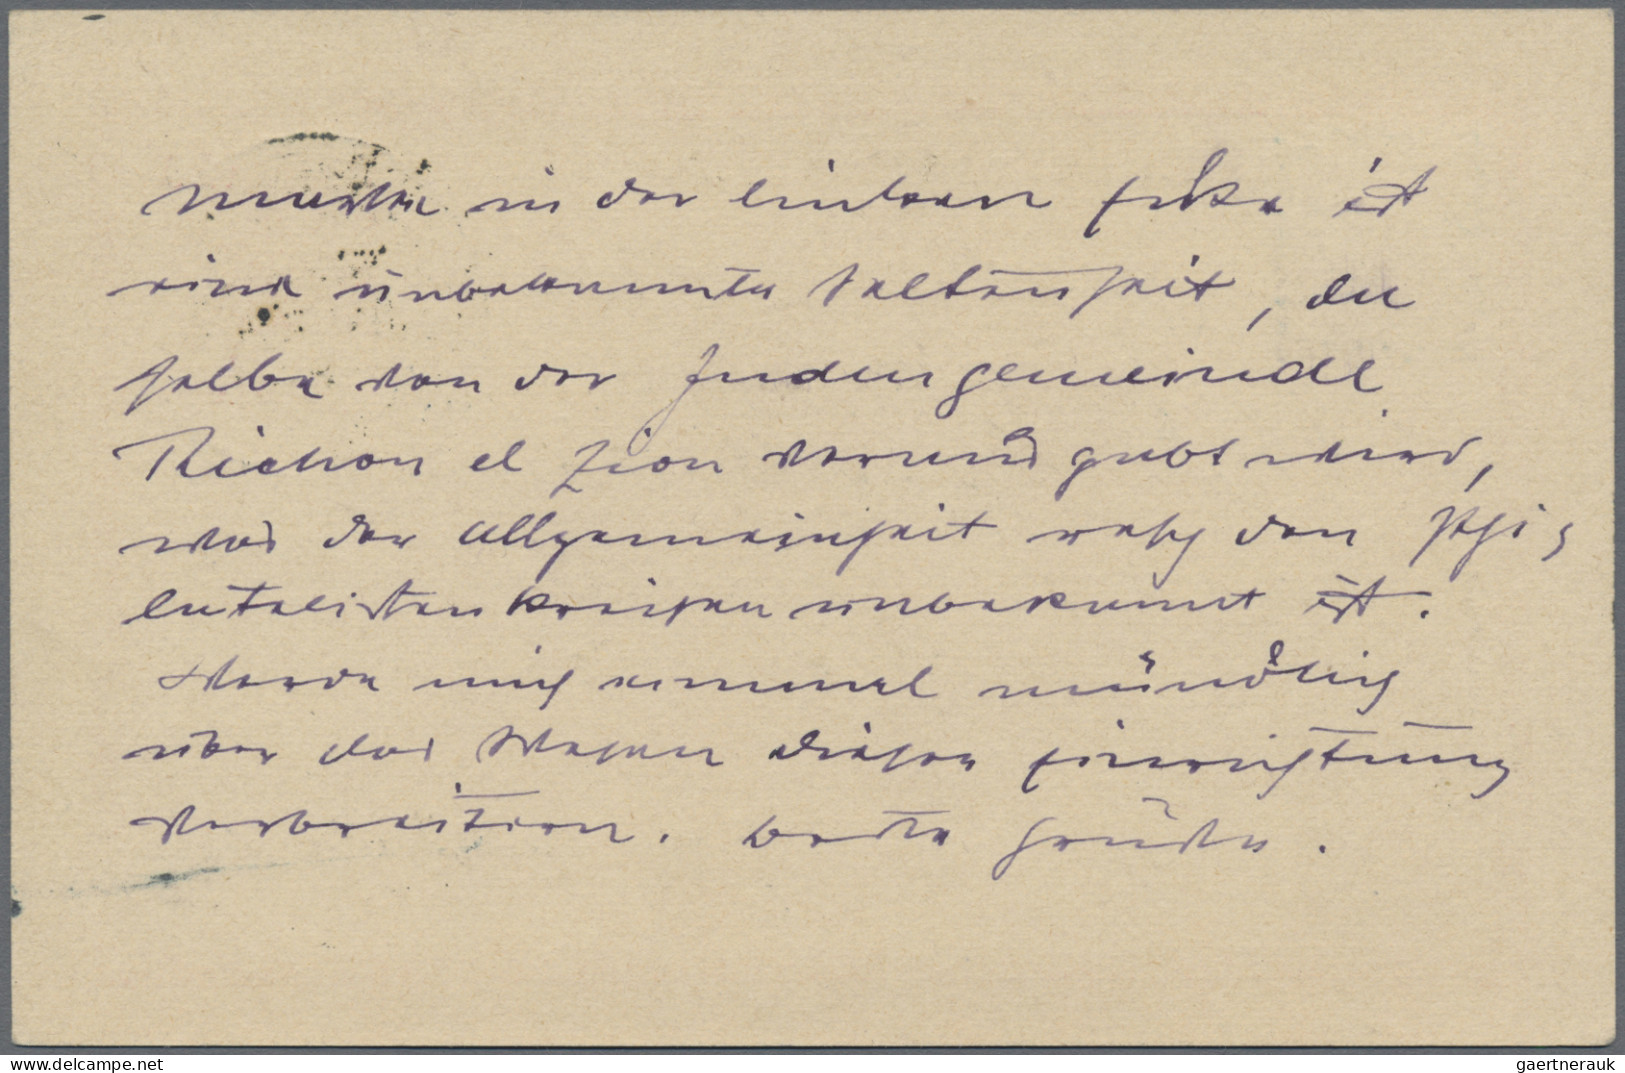 Marke in der linken Ecke ist
eine unbekannte Seltenheit, da
selbe von der Judengemeinde
Richon el Zion verausgabt wird,
was der Allgemeinheit resp den Phi-
latelistenkreisen unbekannt ist.
Werde mich einmal mündlich
über das Wesen dieser Einrichtung
verbreitern. beste Grüße.
delcampe.net
gaertnerauk